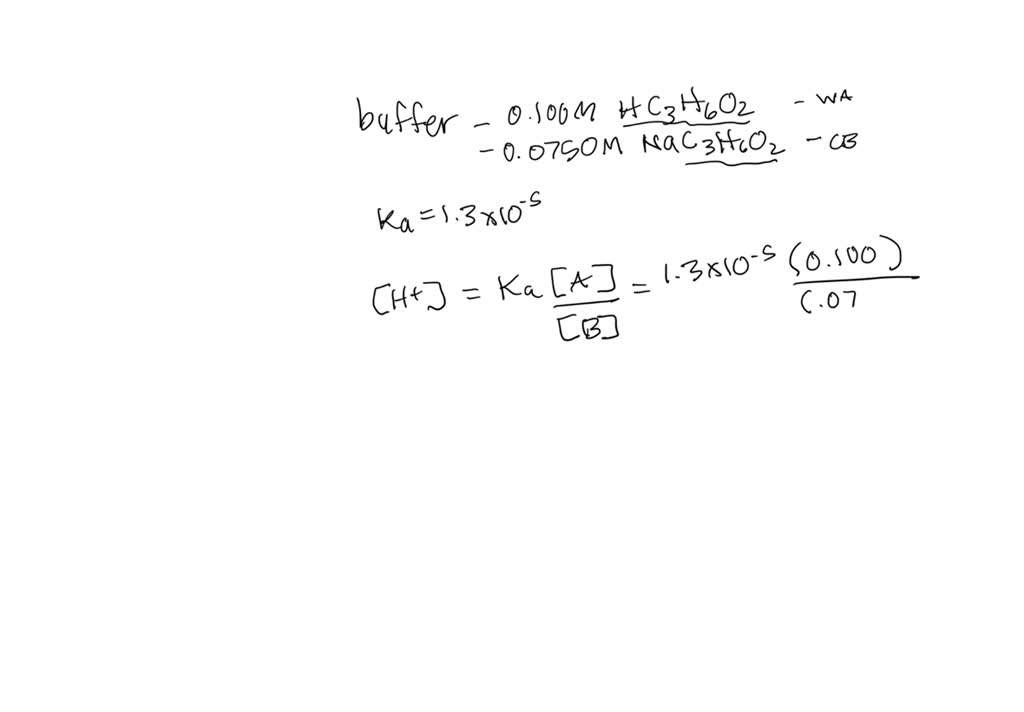 buffer - 0.100M HC3H6O2 - WA
- 0.0750M NaC3H6O2 - CB
Ka = 1.3x10^-5
[H+] = Ka [A] / [B] = 1.3x10^-5 (0.100) / (.07